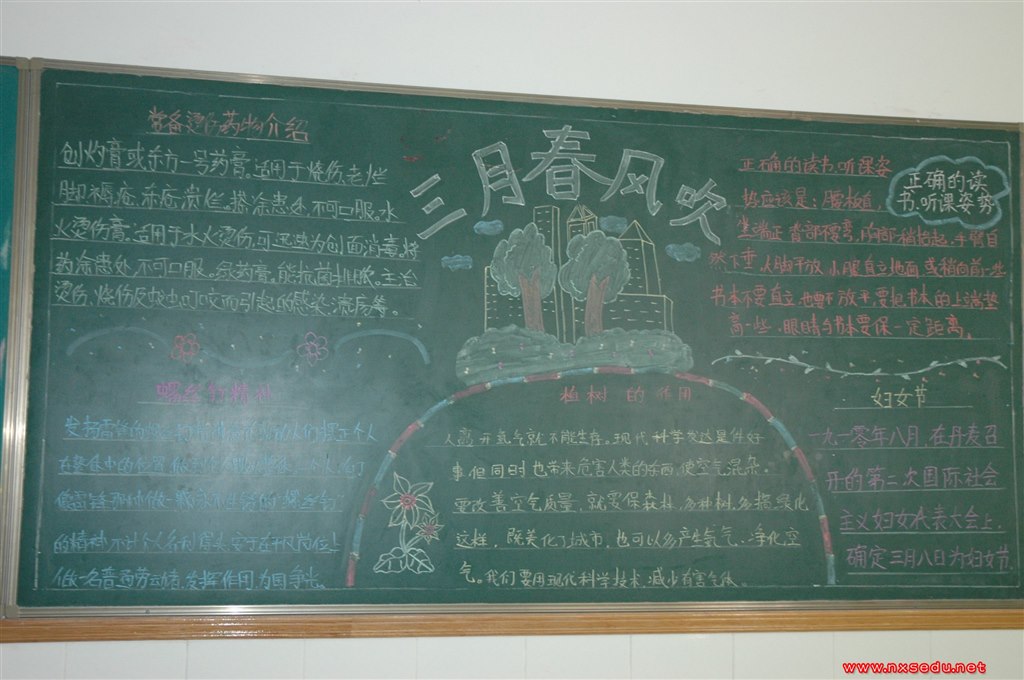 常备烫伤药物介绍
创灼膏或东方一号药膏。适用于烧伤,老烂
脚,褥疮,冻疮溃烂。搽涂患处,不可口服。水
火烫伤膏。适用于水火烫伤,可还浊为创面消毒。将
药涂患处,不可口服。 药膏。能抗菌排脓。主治
烫伤、烧伤及蚊虫叮咬而引起的感染溃疡等。
三月春风吹
正确的读书,听课姿
势应该是:腰板直,
坐端正,背部 ,胸部稍抬起,手臂自
然下垂,大脚平放,小腿直立地面,或稍向前一些
书本不要直立,也要不放平,要把书本的上端垫
高一些,眼睛与书本要保一定距离。
正确的读
书,听课姿势
螺丝钉精神
人们摆正个人
在集体中的位置,
的精神,不计个人名利得失,安于在平凡岗位上
做一名普通劳动者,发挥作用为国争光。
植树 的 作用
人离开氧气就不能生存。现代科学发达是件好
事,但同时也带来危害人类的东西,使空气混杂。
要改善空气质量,就要保森林,多种树,多搞绿化
这样,既美化了城市,也可以多产生氧气、净化空
气。我们要用现代科学技术,减少有害气体。
妇女节
一九一零年八月,在丹麦召
开的第二次国际社会
主义妇女代表大会上,
确定三月八日为妇女节
www.nxsedu.net